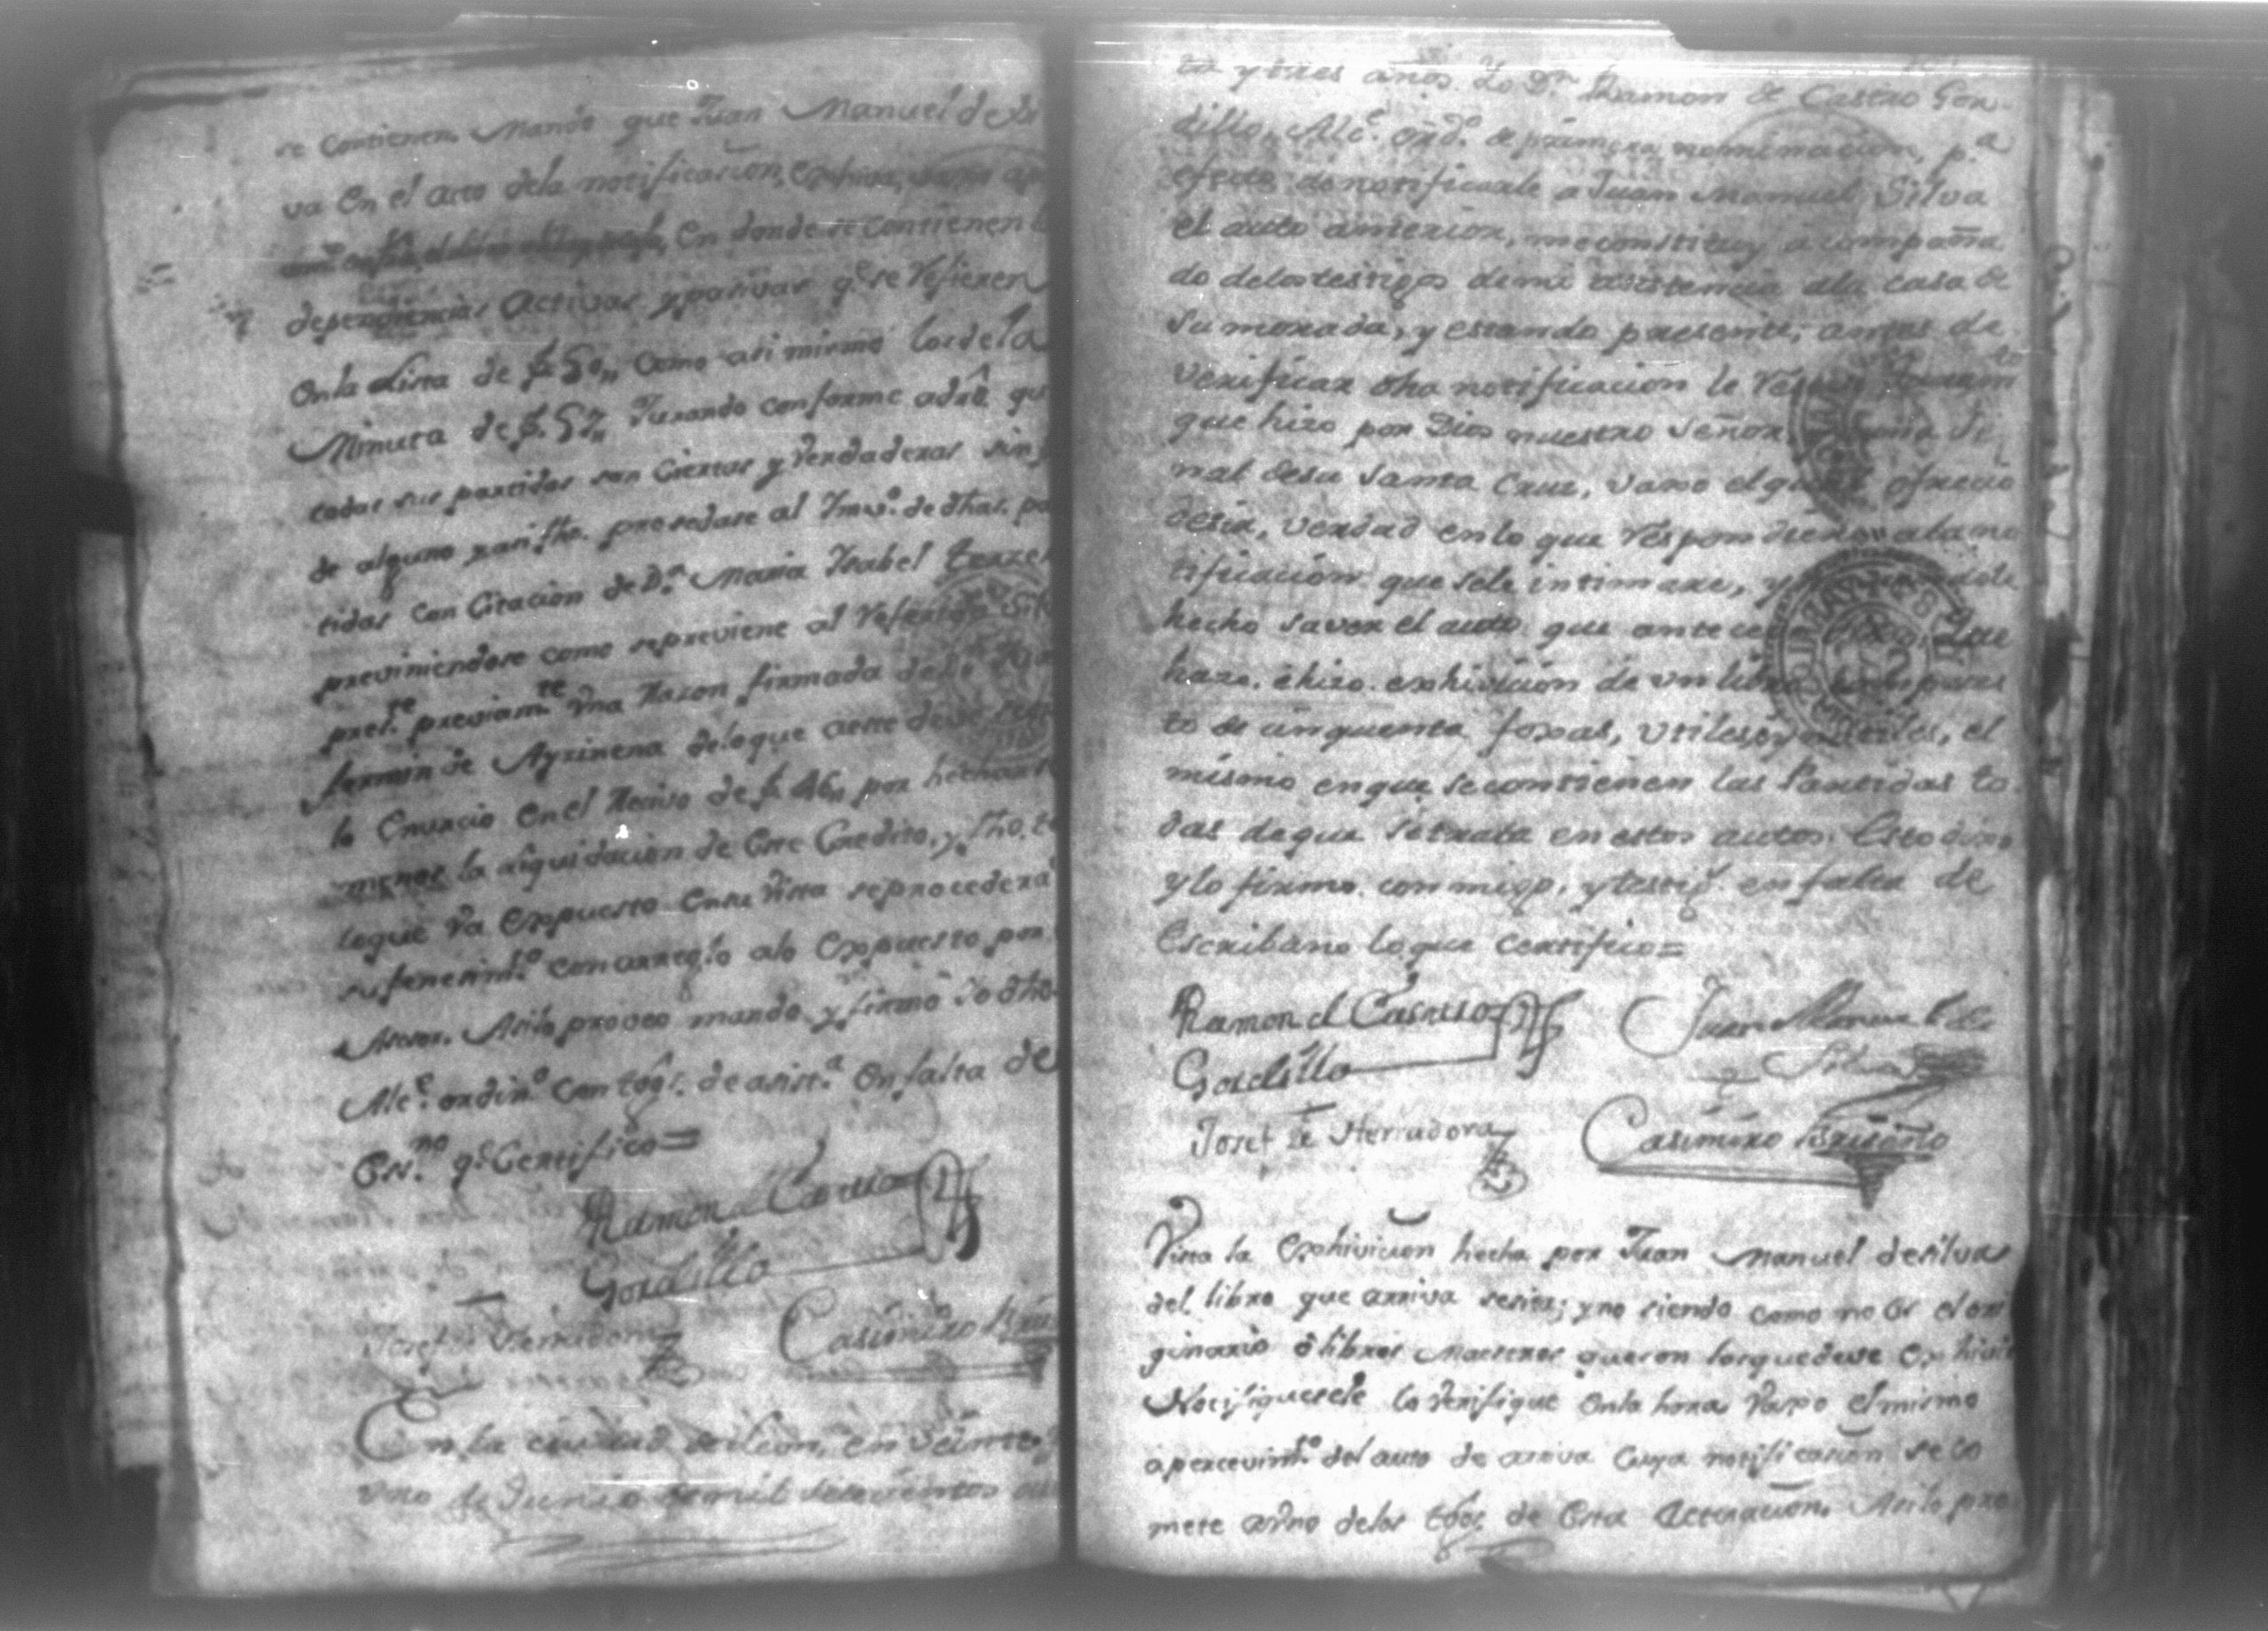 se contienen. Mando que Juan Manuel de Sil
va En el acto dela notificacion, Exhiva,
En donde se contienen l
dependencias Activas y pasivas q.e se Refieren
En la Lista de f. 50,, como asi mismo los de la
Minuta de f. 57,, Jurando conforme a dró qu
todas sus partidas son Ciertas y Verdaderas sin
de alguno y
tidas Con Citacion de D.a Maria Ysabel
previniendose como sepreviene al Referido Sil
pres.te previam.te Vna Razon firmada de
fermin de Ayzinena delo que
lo Enuncio En el Recivo de f. 46,, por
menos la Liquidacion de Este Credito, y
loque Va Expuesto Entu Vista seprocederá
su fenecimt.o con arreglo alo Expuesto por
Asesor. Asilo proveo mando y firmo Yo dho
Alc.e ordin.o con tõgs. de asist.a En falta de
Ess.no q.e Certifico=
Ramon d Castro
Gordillo
Josef de Herradora
Casimiro Brise
En la ciudad de Leon, en veinte y
vno de Junio de mil setecientos
ta y tres años. Yo D.n Ramon de Castro Gor
dillo, Alc.e ord.o de primera nominacion, p.a
efecto de notificarle a Juan Manuel Silva
el auto anterior, me constituy acompaña
do delos testigos de mi asistencia ala casa de
su morada, y estando presente, antes de
verificar dha notificacion le Resevi Juram.to
que hizo por Dios nuestro Señor, y una Se
ñal desu Santa Cruz, vaxo el qual ofrecio
desir, verdad en lo que Respondiere ala no
tificacion que sele intimare, y
hecho saver el auto que antecede Dixo Que
haze. é hizo. exhivicion de un libro compues
to de sinquenta foxas, vtiles, y
mismo en que se contienen las Partidas to
das de que setrata en estos autos. Esto dixo,
y lo firmo conmigo, y testig.s en falta de
Escribano lo que certifico=
Ramon d Castro
Gordillo
Juan Manuel de
Silva
Josef de Herradora
Casimiro Briseño
Vista la Exhivicion hecha por Juan Manuel desilva
del libro que arriva secita; y no siendo como no Es el ori
ginario ó libros Maestros que son losque deve Exhivir
Notifiquesele lo Verifique En la hora Vaxo el mismo
apercevimt.o del auto de arriva Cuya notificacion se co
mete a Vno delos tõgs. de Esta Actuacion. Asilo pro